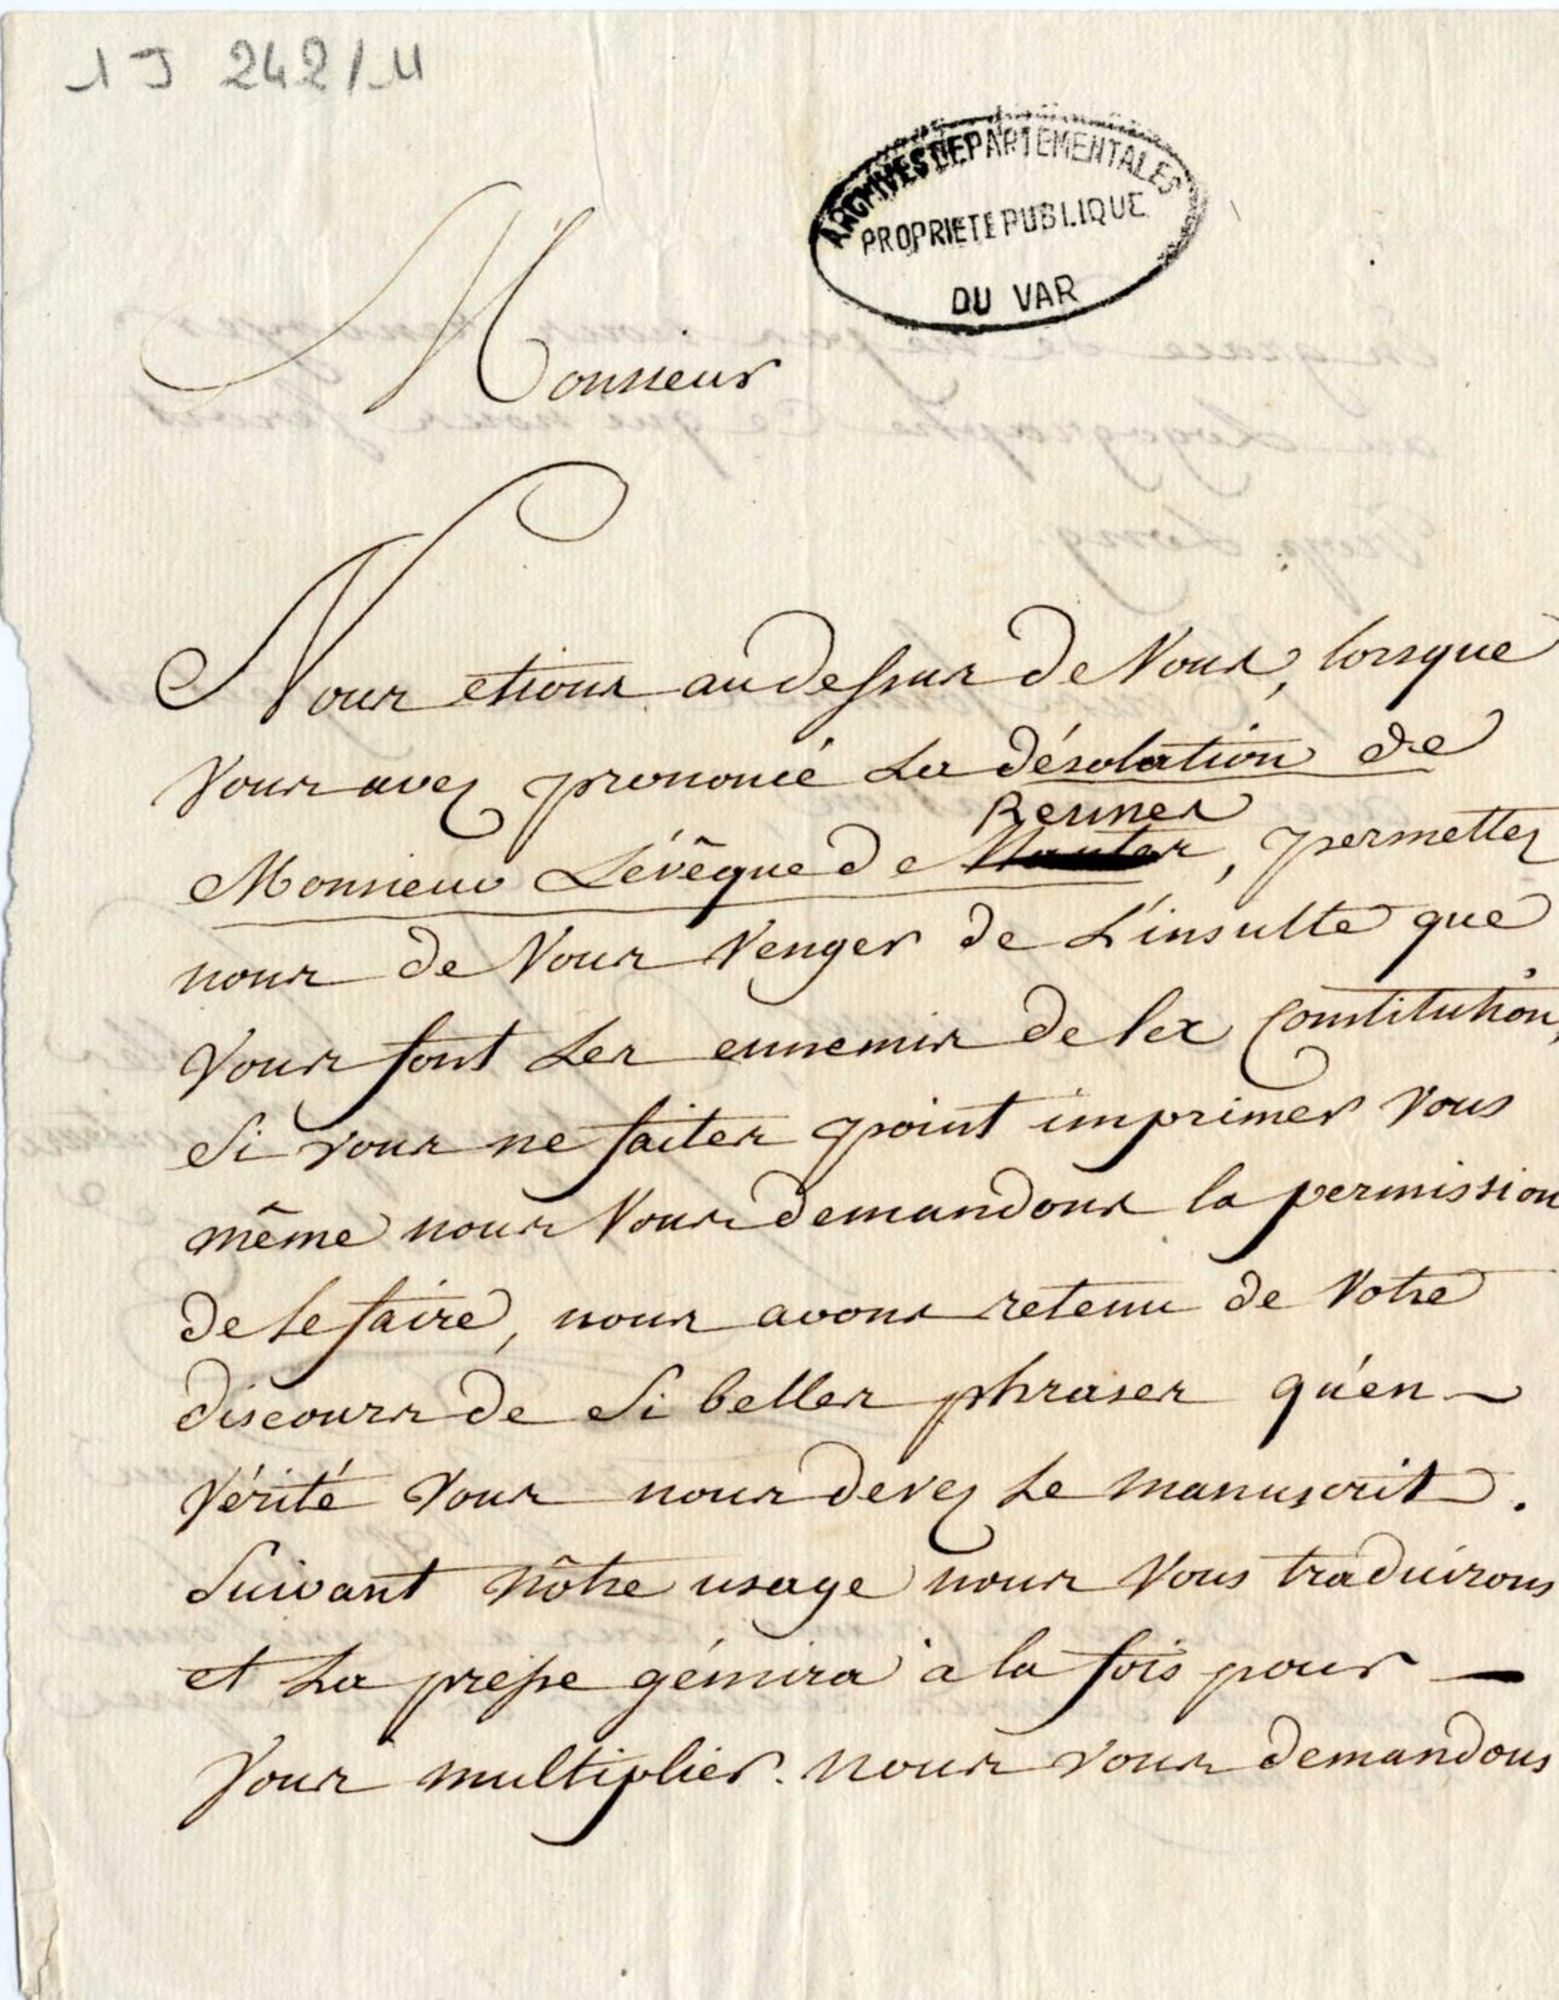 1 J 242/11
ARCHIVES DEPARTEMENTALES
PROPRIETE PUBLIQUE
DU VAR
Monsieur
Nous etions au dessus de Vous, lorsque
Vous avez prononcé la désolation de
Rennes
Monsieur L'évêque de Nantes, permettez
nous de Vous Venger de L'insulte que
Vous font les ennemis de la Constitution,
Si vous ne faites point imprimer Vous
même nous Vous demandons la permission
de le faire, nous avons retenu de Votre
discours de Si belles phrases qu'en
Vérité Vous nous devez le manuscrit.
Suivant nôtre usage nous Vous traduirons
et La presse gémira à la fois pour
Vous multiplier. nous vous demandons